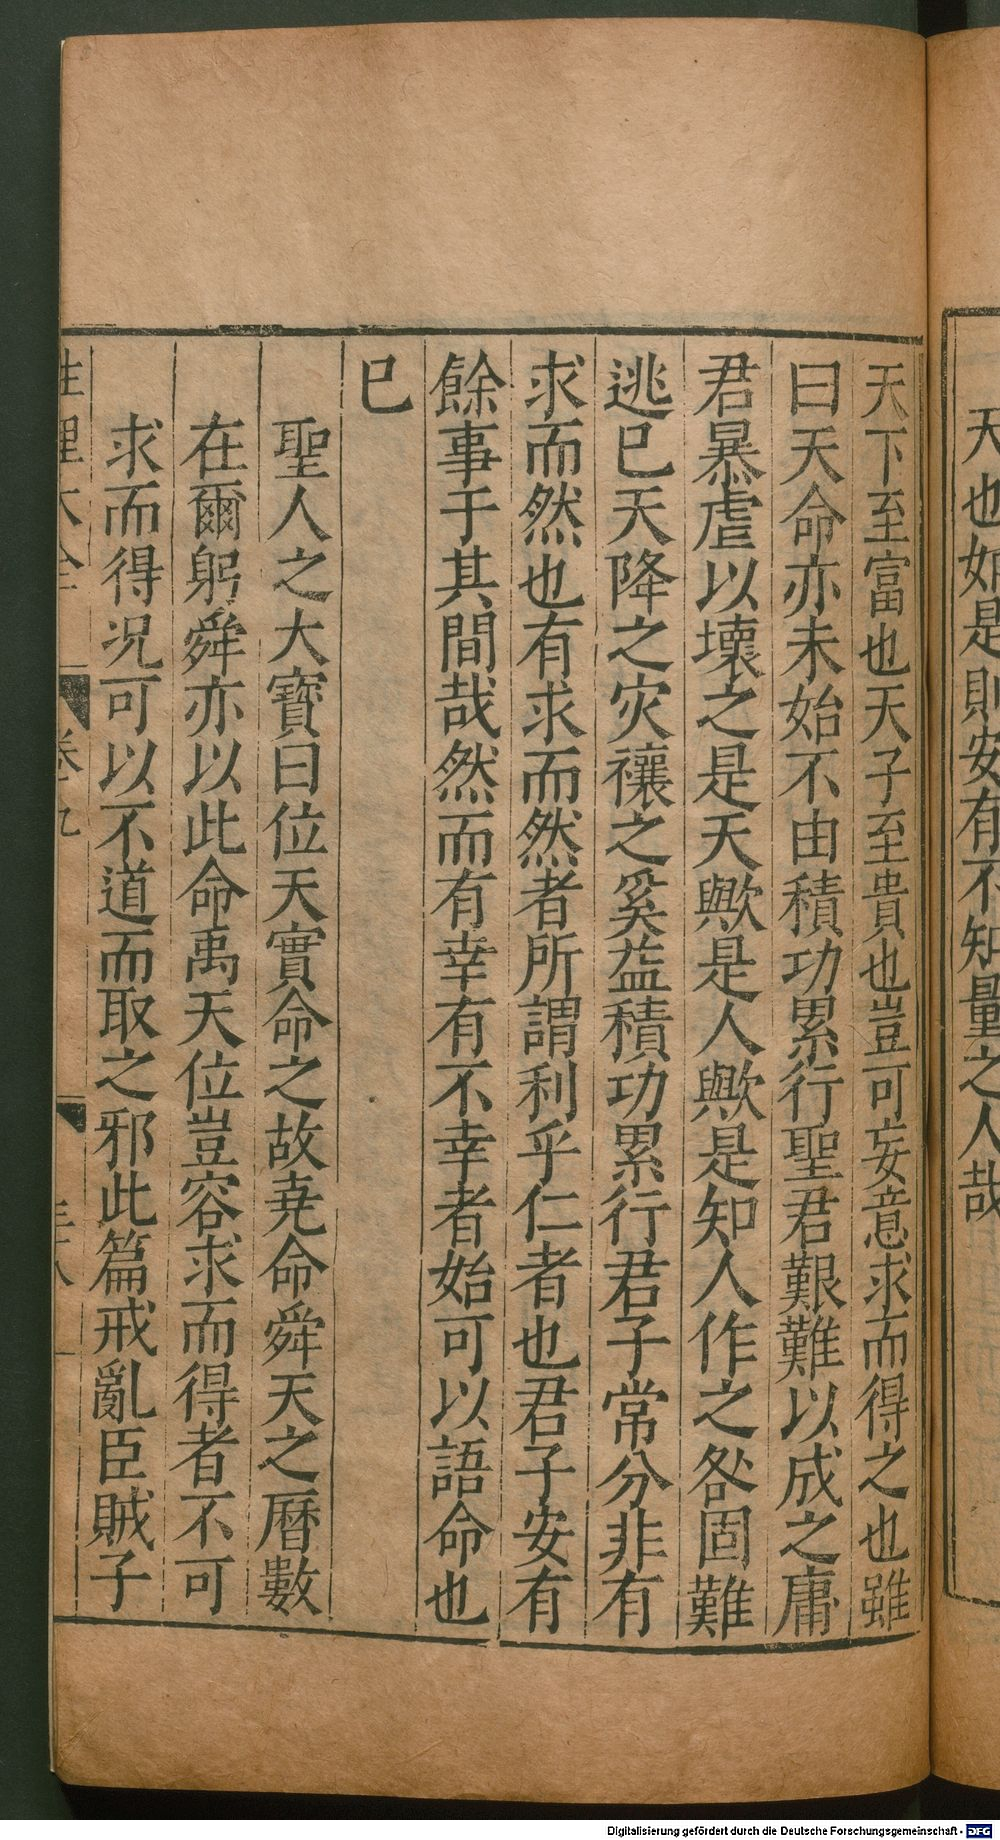 天也如是則安有不知量之人哉
天下至富也天子至貴也豈可妄意求而得之也雖
曰天命亦未始不由積功累行聖君艱難以成之庸
君暴虐以壞之是天歟是人歟是知人作之咎固難
逃已天降之灾禳之奚益積功累行君子常分非有
求而然也有求而然者所謂利乎仁者也君子安有
餘事于其間哉然而有幸有不幸者始可以語命也
已
聖人之大寶曰位天實命之故尭命舜天之曆數
在爾躬舜亦以此命禹天位豈容求而得者不可
求而得况可以不道而取之邪此篇戒亂臣賊子
性理大全 卷九 三十八
Digitalisierung gefördert durch die Deutsche Forschungsgemeinschaft - DFG